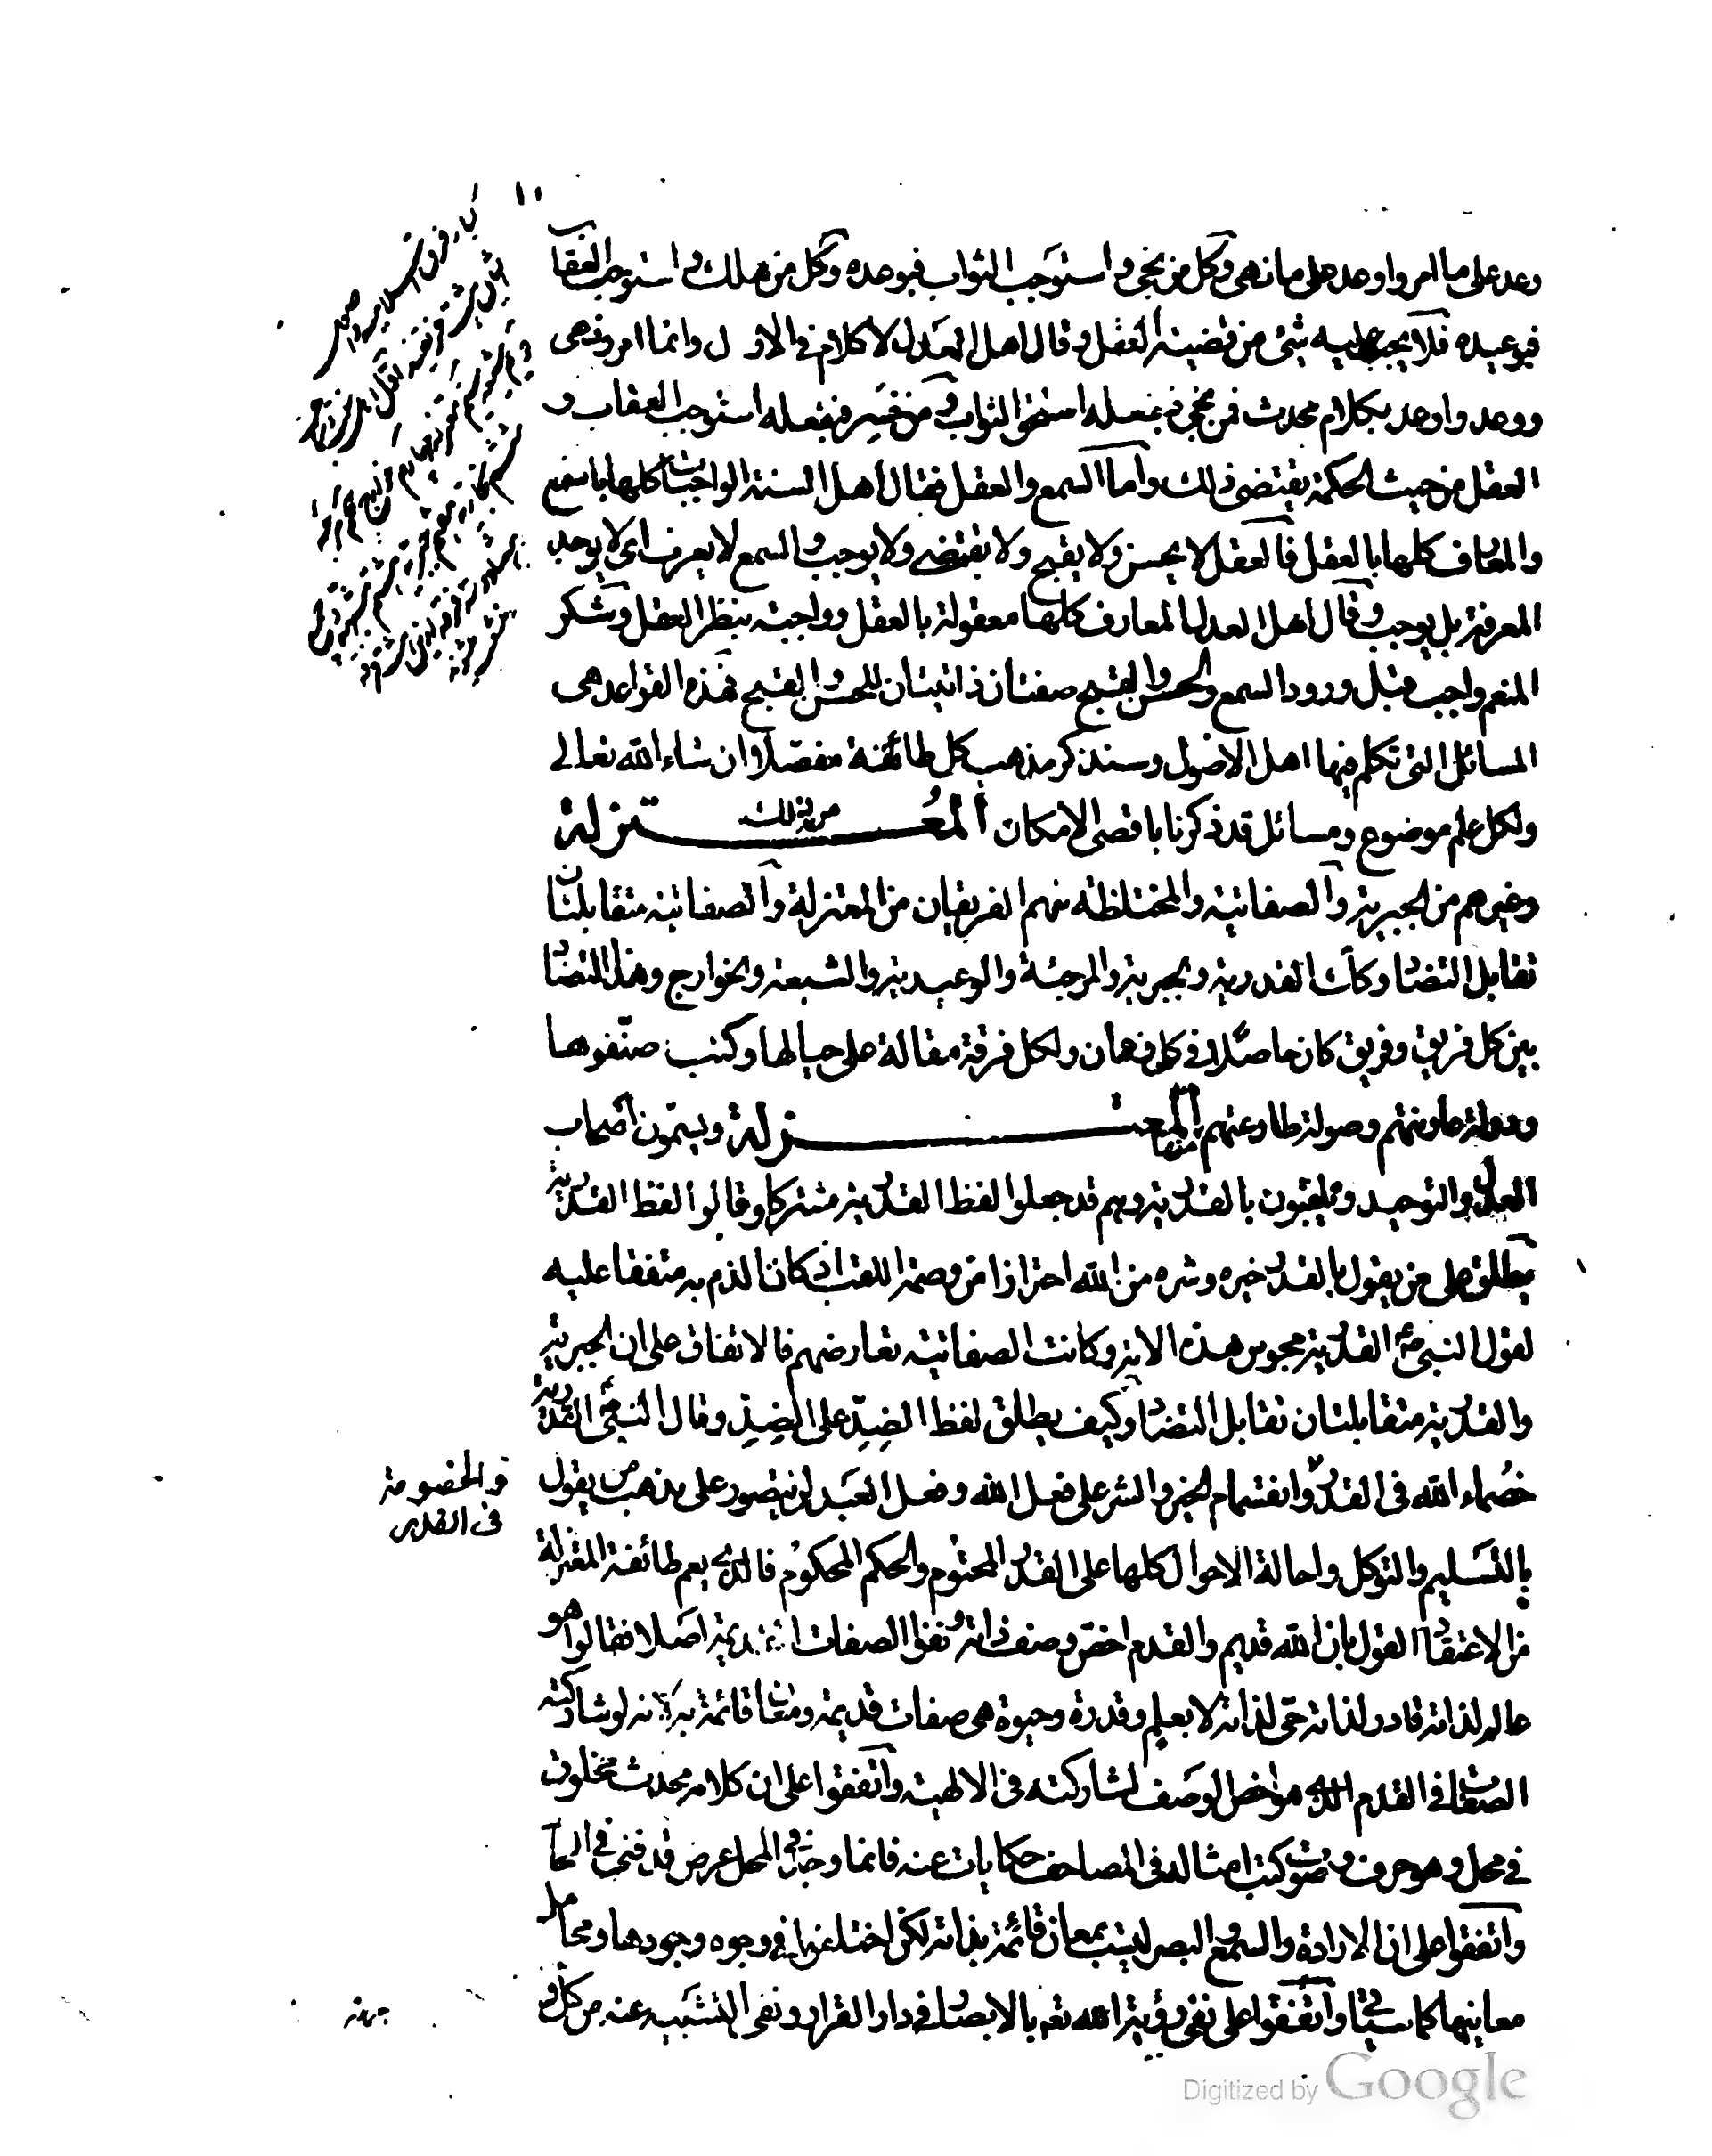 ١١
وعد على ما امر واوعد على ما نهى وكل من نجى واستوجب الثواب فبوعده وكل من هلك واستوجب العقاب
فبوعيده فلا يجب عليه شئ من قضية العقل وقال اهل العدل لا كلام فى الازل وانما امر ونهى
ووعد واوعد بكلام محدث فمن نجى فبفعله استحق الثواب ومن خسر فبفعله استوجب العقاب و
العقل من حيث الحكمة يقتضى ذلك واما السمع والعقل فقال اهل السنة الواجبات كلها بالسمع
والمعارف كلها بالعقل فالعقل لا يحسن ولا يقبح ولا يقتضى ولا يوجب والسمع لا يعرف اى لا يوجد
المعرفة بل يوجب وقال اهل العدل المعارف كلها معقولة بالعقل وواجبة بنظر العقل وشكر
المنعم واجب قبل ورود السمع والحسن والقبح صفتان ذاتيتان للحسن والقبيح فهذه القواعد هى
المسائل التى تكلم فيها اهل الاصول وسنذكر مذهب كل طائفة مفصلا ان شاء الله تعالى
ولكل علم موضوع ومسائل قد ذكرنا باقصى الامكان المعتزلة
وغيرهم من الجبرية والصفاتية والمختلطة منهم الفريقان من المعتزلة والصفاتية متقابلتان
تقابل التضاد وكذلك القدرية والجبرية والمرجئة والوعيدية والشيعة والخوارج وهذا التضاد
بين كل فريق وفريق كان حاصلا فى كل زمان ولكل فرقة مقالة على حيالها وكتب صنفوها
ودولة عاونتهم وصولة طاوعتهم المعتزلة ويسمون اصحاب
العدل والتوحيد ويلقبون بالقدرية وهم قد جعلوا لفظ القدرية مشتركا وقالوا لفظ القدرية
يطلق على من يقول بالقدر خيره وشره من الله احترازا من وصمة اللقب اذ كان الذم به متفقا عليه
لقول النبى القدرية مجوس هذه الامة وكانت الصفاتية تعارضهم فالاتفاق على ان الجبرية
والقدرية متقابلتان تقابل التضاد وكيف يطلق لفظ الضد على الضد وقال النبى القدرية
خصماء الله فى القدر وانقسام الخير والشر على فعل الله وفعل العبد لن يتصور على مذهب من يقول
والخصومة
فى القدر
بالتسليم والتوكل واحالة الاحوال كلها على القدر المحتوم والحكم المحكوم فالذى يعم طائفة المعتزلة
من الاعتقاد القول بان الله قديم والقدم اخص وصف ذاته ونفوا الصفات القديمة اصلا فقالوا هو
عالم لذاته قادر لذاته حى لذاته لا بعلم وقدرة وحيوة هى صفات قديمة ومعان قائمة به لانه لو شاركته
الصفات فى القدم الذى هو اخص الوصف لشاركته فى الالهية واتفقوا على ان كلامه محدث مخلوق
فى محل وهو حرف وصوت كتب امثاله فى المصاحف حكايات عنه فانما وجد فى المحل عرض قد فنى فى الحال
واتفقوا على ان الارادة والسمع والبصر ليست بمعان قائمة بذاته لكن اختلفوا فى وجوه وجودها ومحامل
معانيها كما سيأتى واتفقوا على نفى رؤية الله تعالى بالابصار فى دار القرار ونفى التشبيه عنه من كل و
Digitized by Google